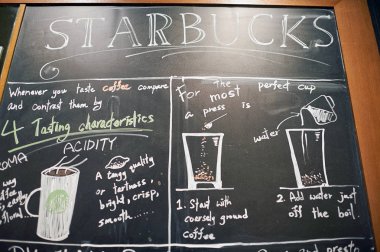 STARBUCKS
Whenever you taste coffee compare
and contrast them by
4 Tasting characteristics
ACIDITY
A tangy quality
or tartness.
bright, crisp,
smooth.....
The perfect cup
For most
a press is
water
1. Start with
coarsely ground
coffee
2. Add water just
off the boil.